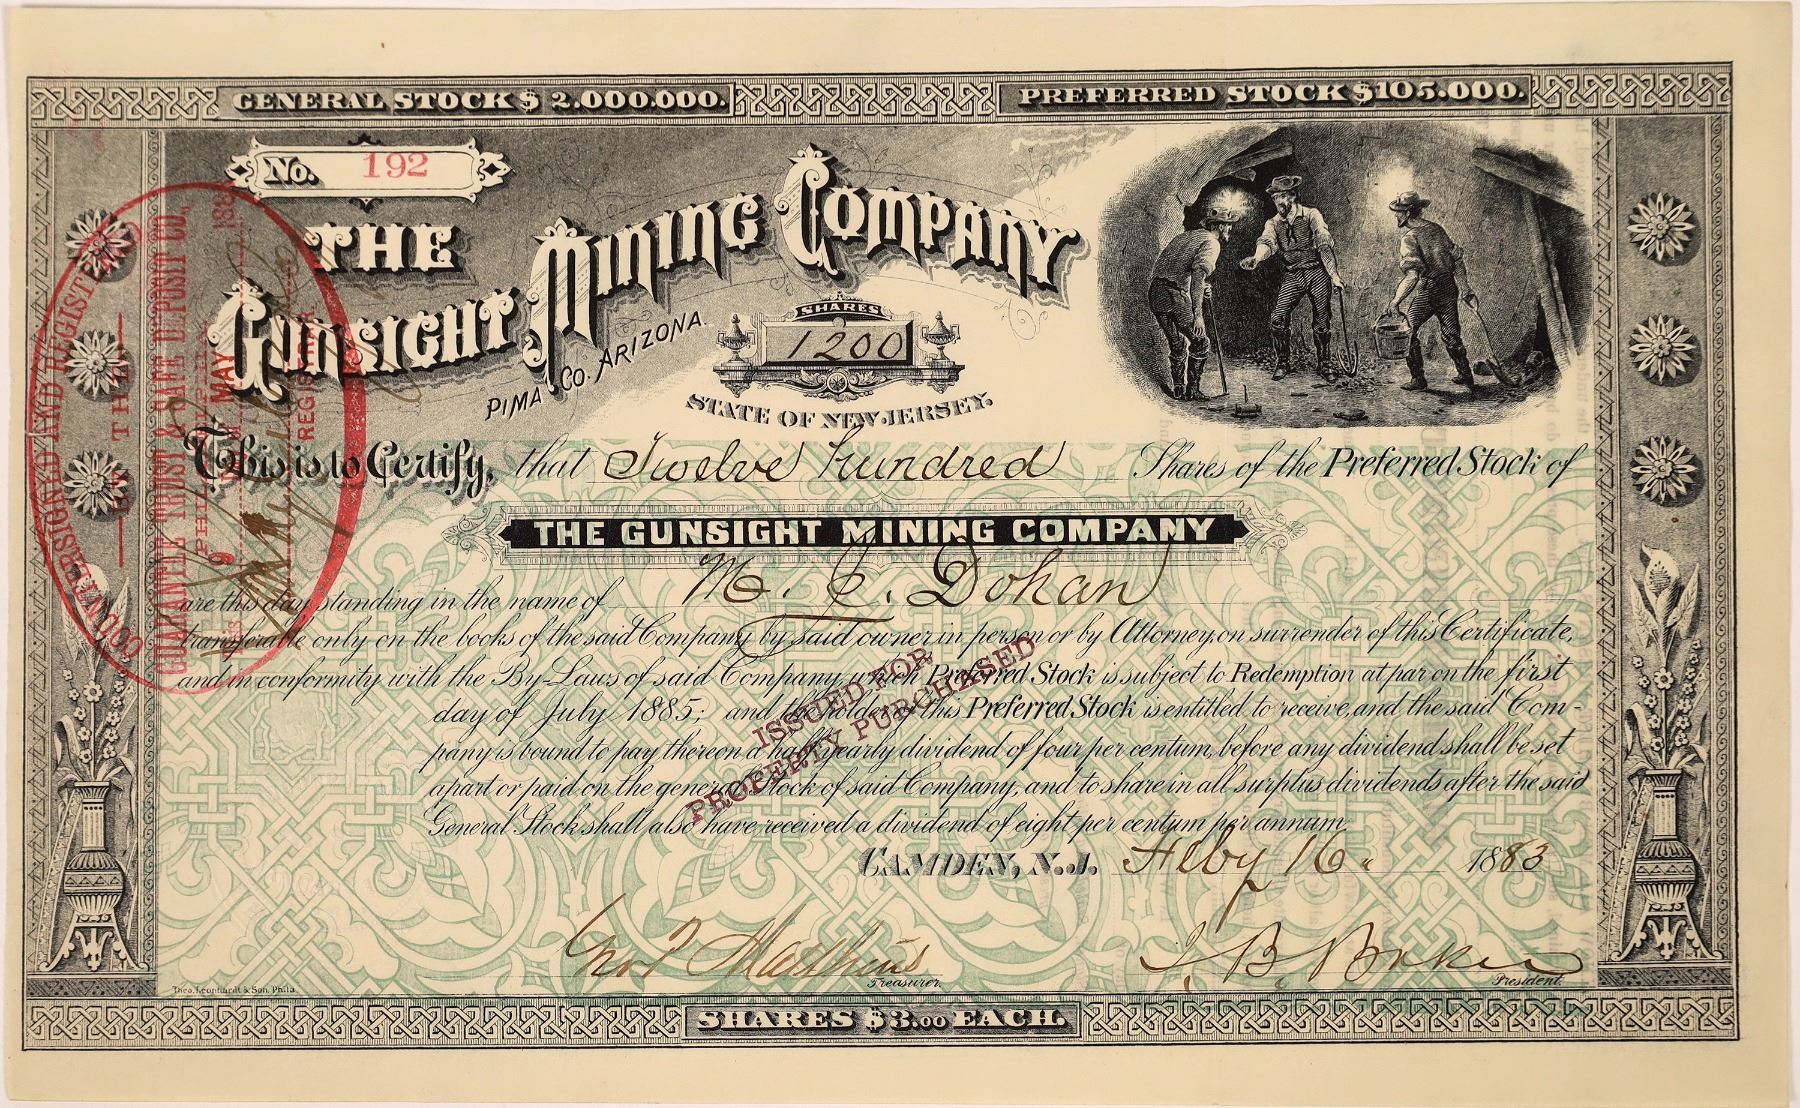 GENERAL STOCK $ 2.000.000.
PREFERRED STOCK $105.000.
No. 192
THE
GUNSIGHT MINING COMPANY
PIMA CO. ARIZONA.
SHARES
1200
STATE OF NEW JERSEY.
This is to Certify, that Twelve hundred Shares of the Preferred Stock of
THE GUNSIGHT MINING COMPANY
are this day standing in the name of M. J. Dohan
transferable only on the books of the said Company by said owner in person or by Attorney, on surrender of this Certificate,
and in conformity with the By-Laws of said Company, which Preferred Stock is subject to Redemption at par on the first
day of July 1885; and the holder of this Preferred Stock is entitled to receive, and the said Com-
pany is bound to pay thereon a half yearly dividend of four per centum, before any dividend shall be set
apart or paid on the general Stock of said Company, and to share in all surplus dividends after the said
General Stock shall also have received a dividend of eight per centum per annum.
ISSUED FOR
PROPERTY PURCHASED
CAMDEN, N.J. Feby 16. 1883
Treasurer.
B. Baker
President.
Theo. Leonhardt & Son, Phila.
SHARES $3.00 EACH.
COUNTERSIGNED AND REGISTERED
BY THE
GUARANTEE TRUST & SAFE DEPOSIT CO.,
MAY